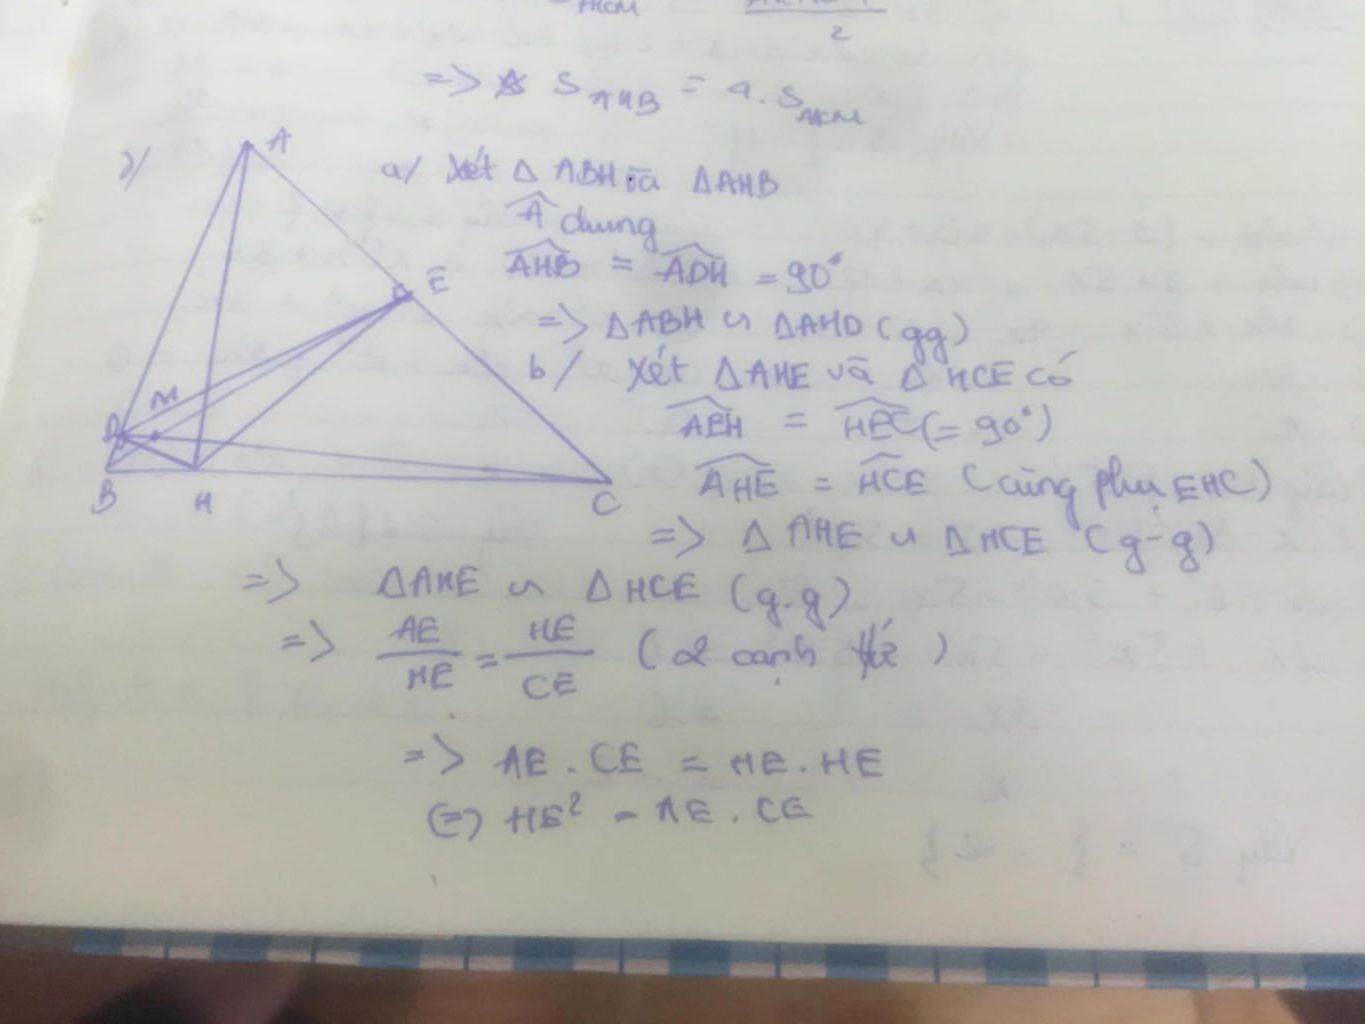 AKM
2
=> S AHB = 4. S AKM
a/ Xét Δ ABH và ΔAHB
A chung
AHB = ADH = 90°
=> ΔABH ∽ ΔAHD (gg)
b/ Xét ΔAHE và Δ HCE có
AEH = HEC (= 90°)
AHE = HCE (cùng phụ EHC)
=> Δ AHE ∽ ΔHCE (g-g)
=> ΔAHE ∽ ΔHCE (g.g)
=> AE/HE = HE/CE (2 cạnh)
=> AE . CE = HE . HE
(=) HE² = AE . CE
A
E
M
D
B
H
C